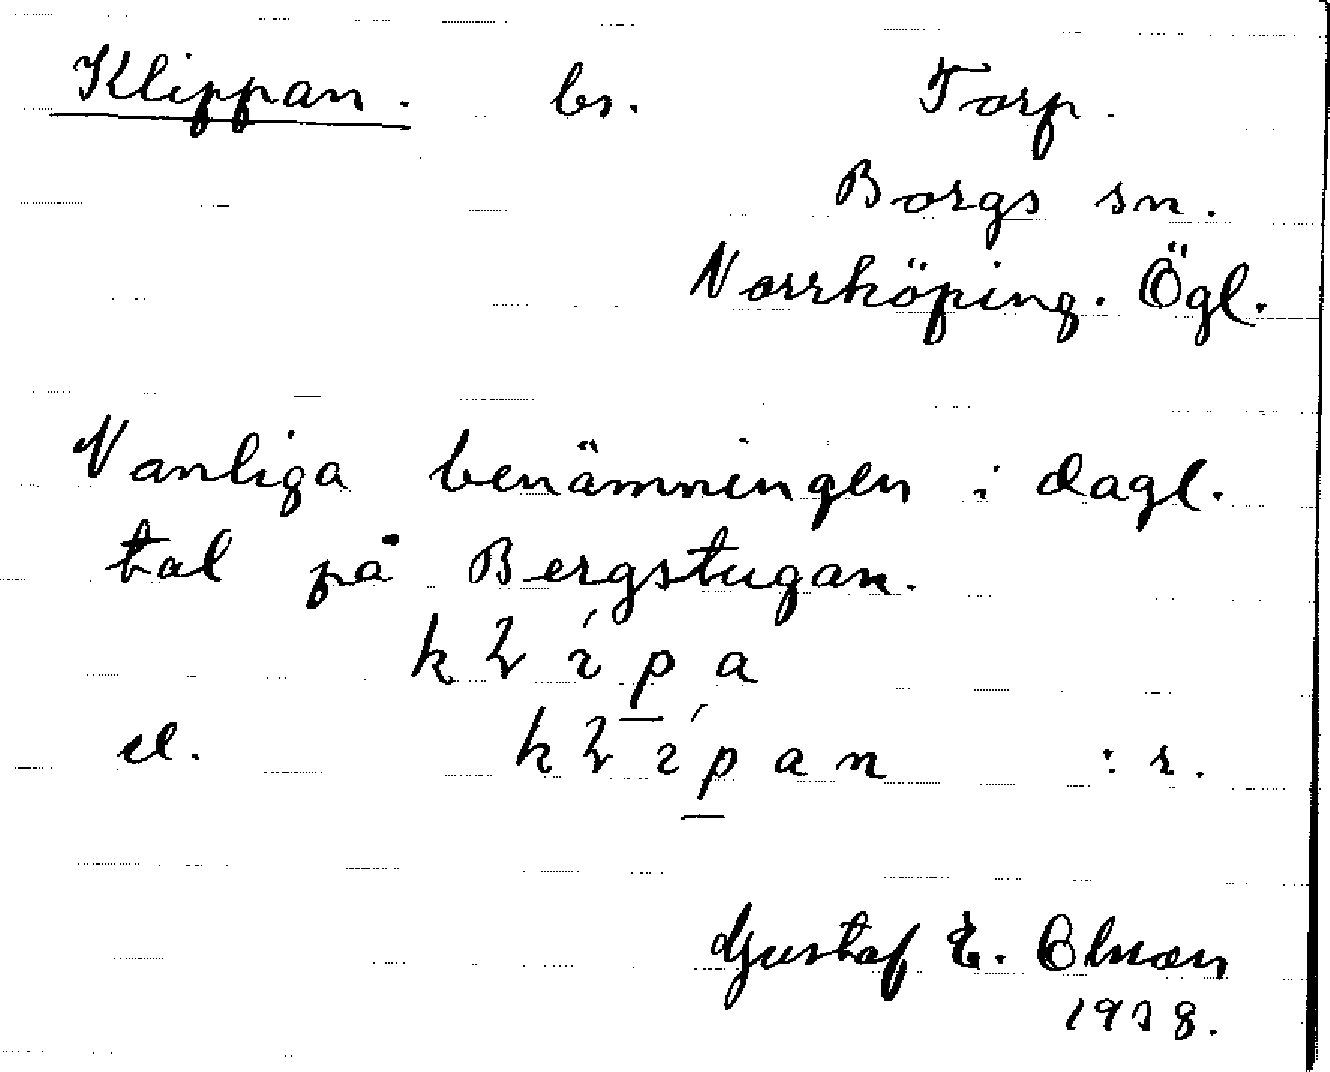 Klippan. bs. Torp.
Borgs sn.
Norrköping. Ögl.
Vanliga benämningen i dagl.
tal på Bergstugan.
el.
Gustaf E. Olsson
1938.